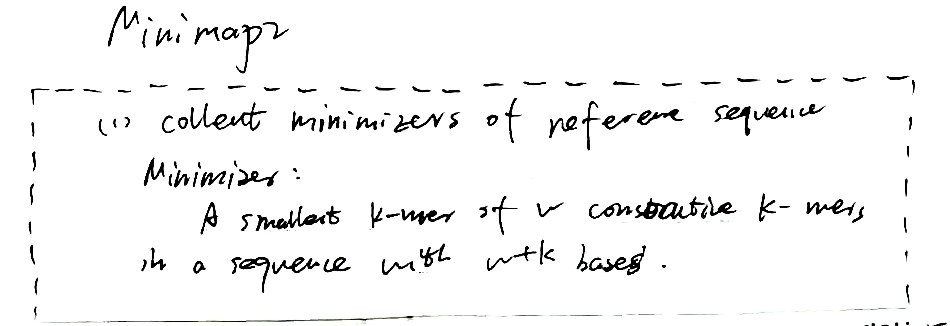 Minimap2
(1) collect minimizers of reference sequence
Minimizer:
A smallest k-mer of w consecutive k-mers
in a sequence with w+k bases.